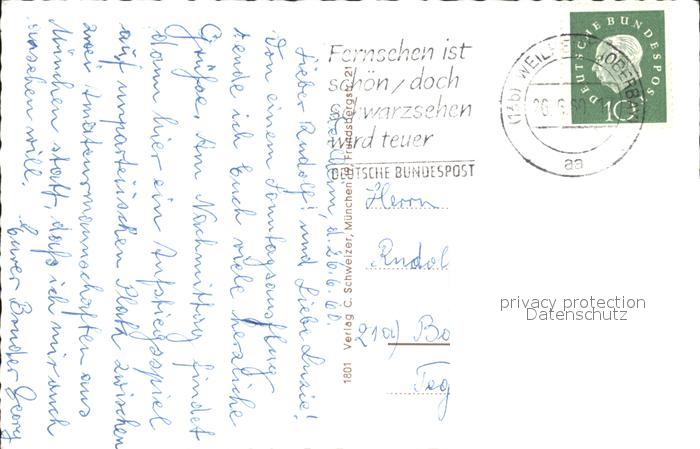 Weilheim, d. 26.6.60.
Lieber Rudolf und Liebe Luzie!
Von einem Sonntagsausflug
sende ich Euch viele herzliche
Grüße. Am Nachmittag findet
dann hier ein Aufstiegsspiel
auf unparteiischen Platz zwischen
zwei Amateurmannschaften aus
München statt, daß ich mir auch
ansehen will.
Euer Bruder Georg
1801 Verlag C. Schweizer, München 19, Frundsbergstr. 21
Fernsehen ist
schön, doch
schwarzsehen
wird teuer
DEUTSCHE BUNDESPOST
(13b) WEILHEIM (OBERBAY)
26.6.60
aa
DEUTSCHE BUNDESPOST
10
Herrn
Rudol
21a) Bo
privacy protection
Datenschutz